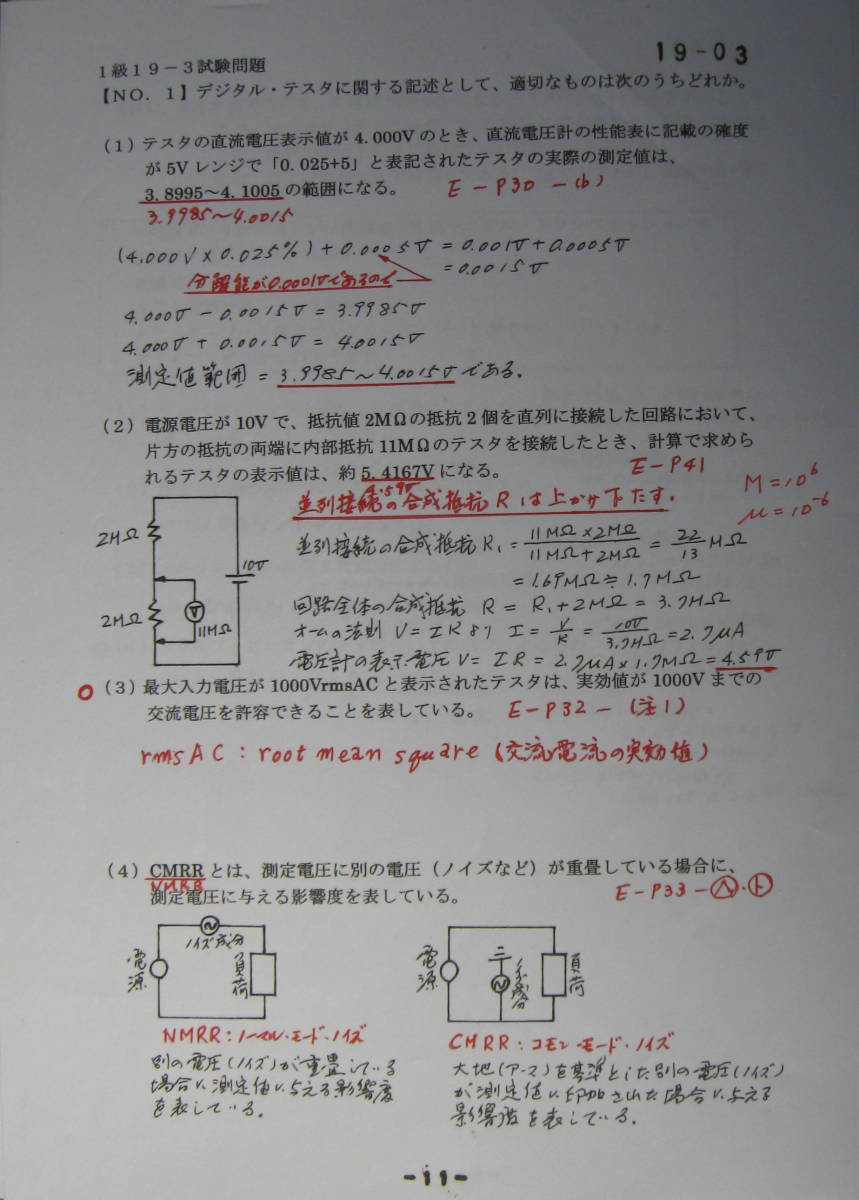 19-03
1級19－3試験問題
【NO．1】デジタル・テスタに関する記述として、適切なものは次のうちどれか。
（1）テスタの直流電圧表示値が 4.000V のとき、直流電圧計の性能表に記載の確度
が 5V レンジで「0.025+5」と表記されたテスタの実際の測定値は、
3.8995～4.1005 の範囲になる。 E－P30－(b)
3.9985～4.0015
(4.000V×0.025%)+0.0005V = 0.001V+0.0005V
= 0.0015V
分解能が0.0001Vであるので
4.000V － 0.0015V = 3.9985V
4.000V + 0.0015V = 4.0015V
測定値範囲 = 3.9985～4.0015Vである。
（2）電源電圧が 10V で、抵抗値 2MΩの抵抗 2 個を直列に接続した回路において、
片方の抵抗の両端に内部抵抗 11MΩのテスタを接続したとき、計算で求めら
れるテスタの表示値は、約 5.4167V になる。 E－P41
4.59V
並列接続の合成抵抗R は上かけ下たす。
M=10⁶
μ=10⁻⁶
2MΩ
10V
2MΩ
V
11MΩ
並列接続の合成抵抗R₁ = 11MΩ×2MΩ / 11MΩ+2MΩ = 22/13 MΩ
= 1.69MΩ≒1.7MΩ
回路全体の合成抵抗 R = R₁+2MΩ = 3.7MΩ
オームの法則 V=IRより I = V/R = 10V/3.7MΩ = 2.7μA
電圧計の表示電圧 V = IR = 2.7μA×1.7MΩ = 4.59V
○（3）最大入力電圧が 1000VrmsAC と表示されたテスタは、実効値が 1000V までの
交流電圧を許容できることを表している。 E－P32－(注1)
rmsAC：root mean square (交流電流の実効値)
（4）CMRR とは、測定電圧に別の電圧（ノイズなど）が重畳している場合に、
NMRR
測定電圧に与える影響度を表している。 E－P33－ハ・ト
ノイズ成分
電源
負荷
電源
ノイズ成分
負荷
NMRR：ノーマル・モード・ノイズ
別の電圧(ノイズ)が重畳している
場合に測定値に与える影響度
を表している。
CMRR：コモン・モード・ノイズ
大地(アース)を基準とした別の電圧(ノイズ)
が測定値に印加された場合に与える
影響度を表している。
-11-